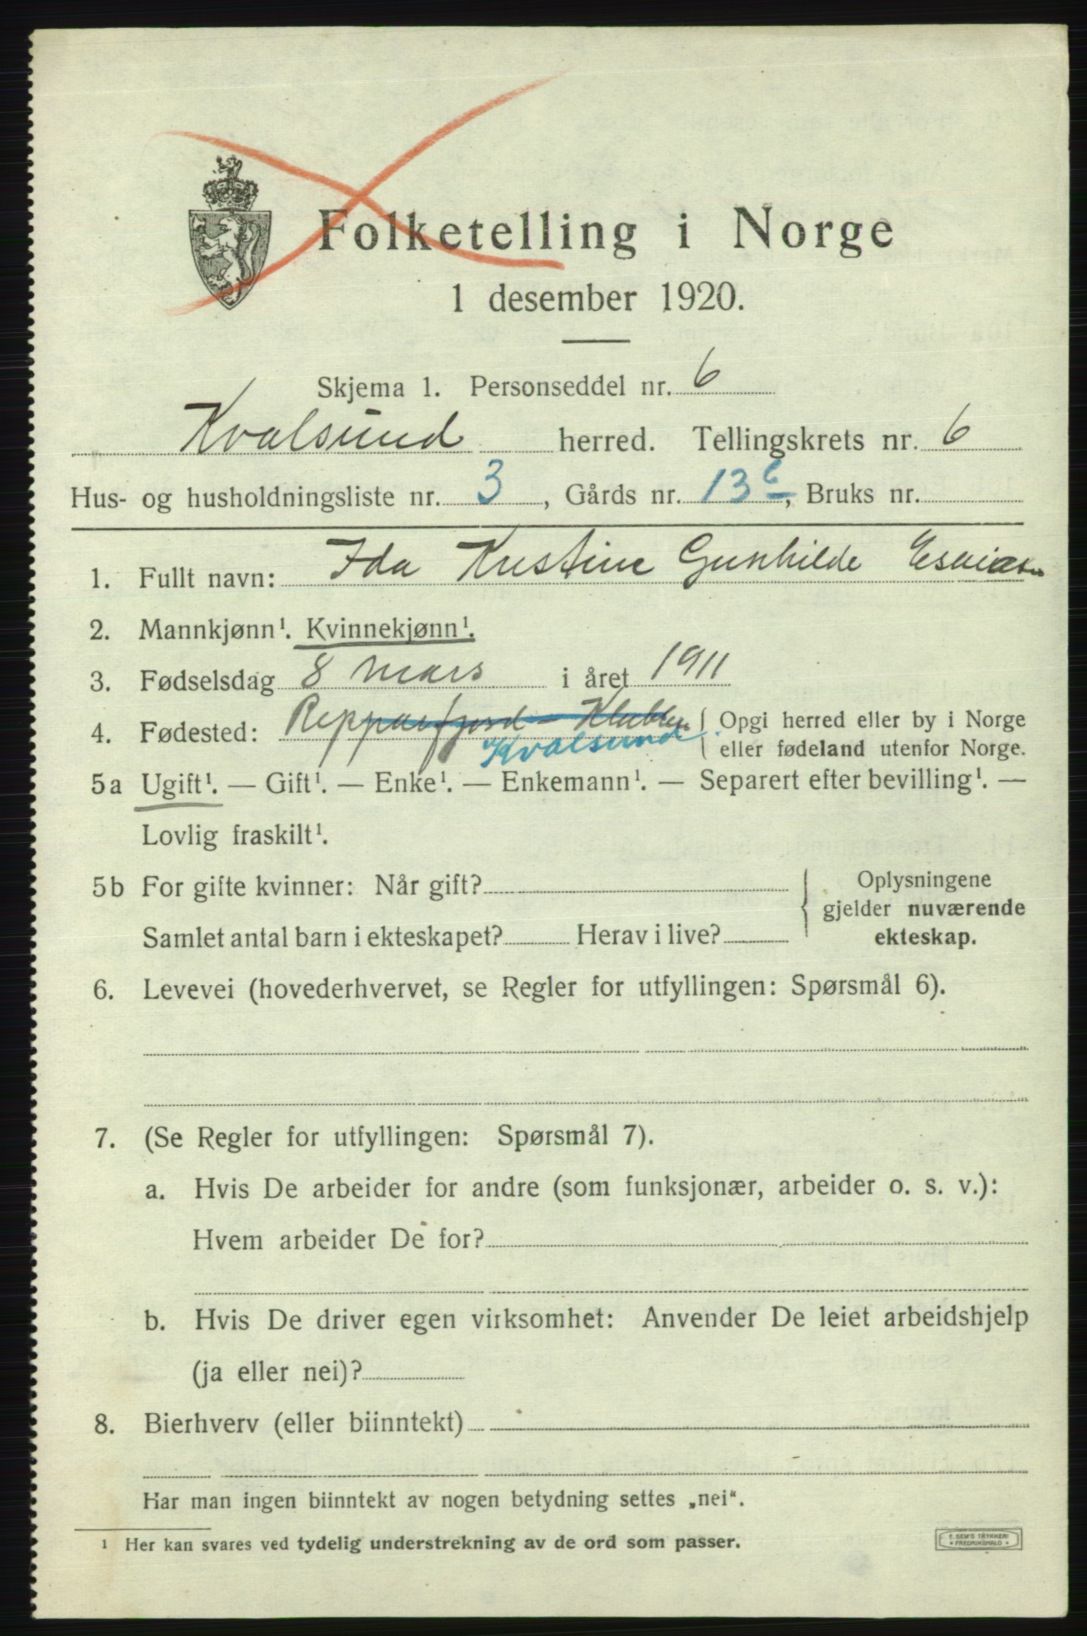 Folketelling i Norge
1 desember 1920.
Skjema 1. Personseddel nr. 6
Kvalsund herred. Tellingskrets nr. 6
Hus- og husholdningsliste nr. 3, Gårds nr. 13c, Bruks nr.
1. Fullt navn: Ida Kristine Gunhilde Esaias
2. Mannkjønn¹. Kvinnekjønn¹.
3. Fødselsdag 8 mars i året 1911
4. Fødested: Repparfjord - Klubben { Opgi herred eller by i Norge
Kvalsund. eller fødeland utenfor Norge.
5a Ugift¹. — Gift¹. — Enke¹. — Enkemann¹. — Separert efter bevilling¹. —
Lovlig fraskilt¹.
5b For gifte kvinner: Når gift? { Oplysningene
gjelder nuværende
Samlet antal barn i ekteskapet? Herav i live? ekteskap.
6. Levevei (hovederhvervet, se Regler for utfyllingen: Spørsmål 6).
7. (Se Regler for utfyllingen: Spørsmål 7).
a. Hvis De arbeider for andre (som funksjonær, arbeider o. s. v.):
Hvem arbeider De for?
b. Hvis De driver egen virksomhet: Anvender De leiet arbeidshjelp
(ja eller nei)?
8. Bierhverv (eller biinntekt)
Har man ingen biinntekt av nogen betydning settes „nei“.
¹ Her kan svares ved tydelig understrekning av de ord som passer.
E. SEM'S TRYKKERI
FREDRIKSHALD